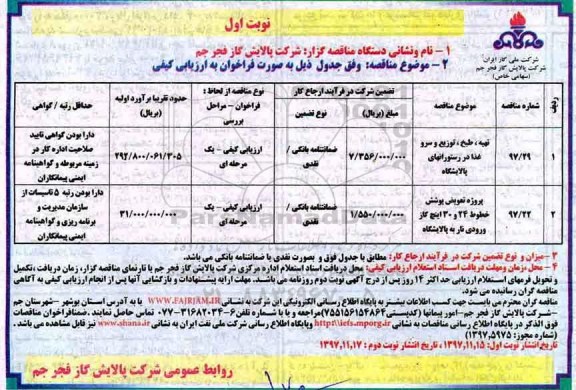 نوبت اول
شرکت ملی گاز ایران
شرکت پالایش گاز فجر جم
(سهامی خاص)
۱ - نام ونشانی دستگاه مناقصه گزار: شرکت پالایش گاز فجر جم
۲ - موضوع مناقصه: وفق جدول ذیل به صورت فراخوان به ارزیابی کیفی
ردیف
شماره مناقصه
موضوع مناقصه
تضمین شرکت در فرآیند ارجاع کار
مبلغ (ریال)
نوع تضمین
نوع مناقصه از لحاظ : فراخوان - مراحل بررسی
حدود تقریبا برآورد اولیه (ریال)
حداقل رتبه / گواهی
۱
۹۷/۲۹
تهیه ، طبخ ، توزیع و سرو غذا در رستورانهای پالایشگاه
۷/۳۵۶/۰۰۰/۰۰۰
ضمانتنامه بانکی / نقدی
ارزیابی کیفی - یک مرحله ای
۲۹۴/۸۰۰/۰۶۱/۳۰۵
دارا بودن گواهی تایید صلاحیت اداره کار در زمینه مربوطه و گواهینامه ایمنی پیمانکاران
۲
۹۷/۲۲
پروژه تعویض پوشش خطوط ۲۴ و ۳۰ اینچ گاز ورودی نار به پالایشگاه
۱/۵۵۰/۰۰۰/۰۰۰
ضمانتنامه بانکی / نقدی
ارزیابی کیفی - یک مرحله ای
۳۱/۰۰۰/۰۰۰/۰۰۰
دارا بودن رتبه ۵ تاسیسات از سازمان مدیریت و برنامه ریزی و گواهینامه ایمنی پیمانکاران
۳ - میزان و نوع تضمین شرکت در فرآیند ارجاع کار: مطابق با جدول فوق و بصورت نقدی یا ضمانتنامه بانکی می باشد.
۴ - محل، زمان ومهلت دریافت اسناد استعلام ارزیابی کیفی: محل دریافت اسناد استعلام اداره مرکزی شرکت پالایش گاز فجر جم یا تارنمای مناقصه گزار، زمان دریافت ، تکمیل
و تحویل فرمهای استعلام ارزیابی حداکثر ۱۴ روز پس از درج آگهی نوبت دوم روزنامه می باشد. مهلت ارایه پیشنهادات و بازگشایی آنها پس از انجام ارزیابی کیفی به آگاهی
مناقصه گران رسانیده می شود.
مناقصه گران محترم می بایست جهت کسب اطلاعات بیشتر به پایگاه اطلاع رسانی الکترونیکی این شرکت به نشانی WWW.FAJRJAM.IR یا به آدرس استان بوشهر -شهرستان جم
-شرکت پالایش گاز فجر جم-امور پیمانها (کدپستی۷۵۵۱۵۶۱۵۴۸۶۴)مراجعه و یا با شماره تلفن۶-۳۱۶۸۲۰۳۴-۰۷۷ تماس حاصل نمایند .ضمنافراخوان مناقصات
فوق الذکر در پایگاه اطلاع رسانی مناقصات به نشانی http\\iets.mporg.ir وپایگاه اطلاع رسانی شرکت ملی نفت ایران به نشانی www.shana.ir نیز قابل مشاهده می باشد .
(شماره مجوز: ۱۳۹۷,۵۹۷۵)
تاریخ انتشار نوبت اول : ۱۳۹۷,۱۱,۱۵ , تاریخ انتشار نوبت دوم : ۱۳۹۷,۱۱,۱۷
روابط عمومی شرکت پالایش گاز فجر جم